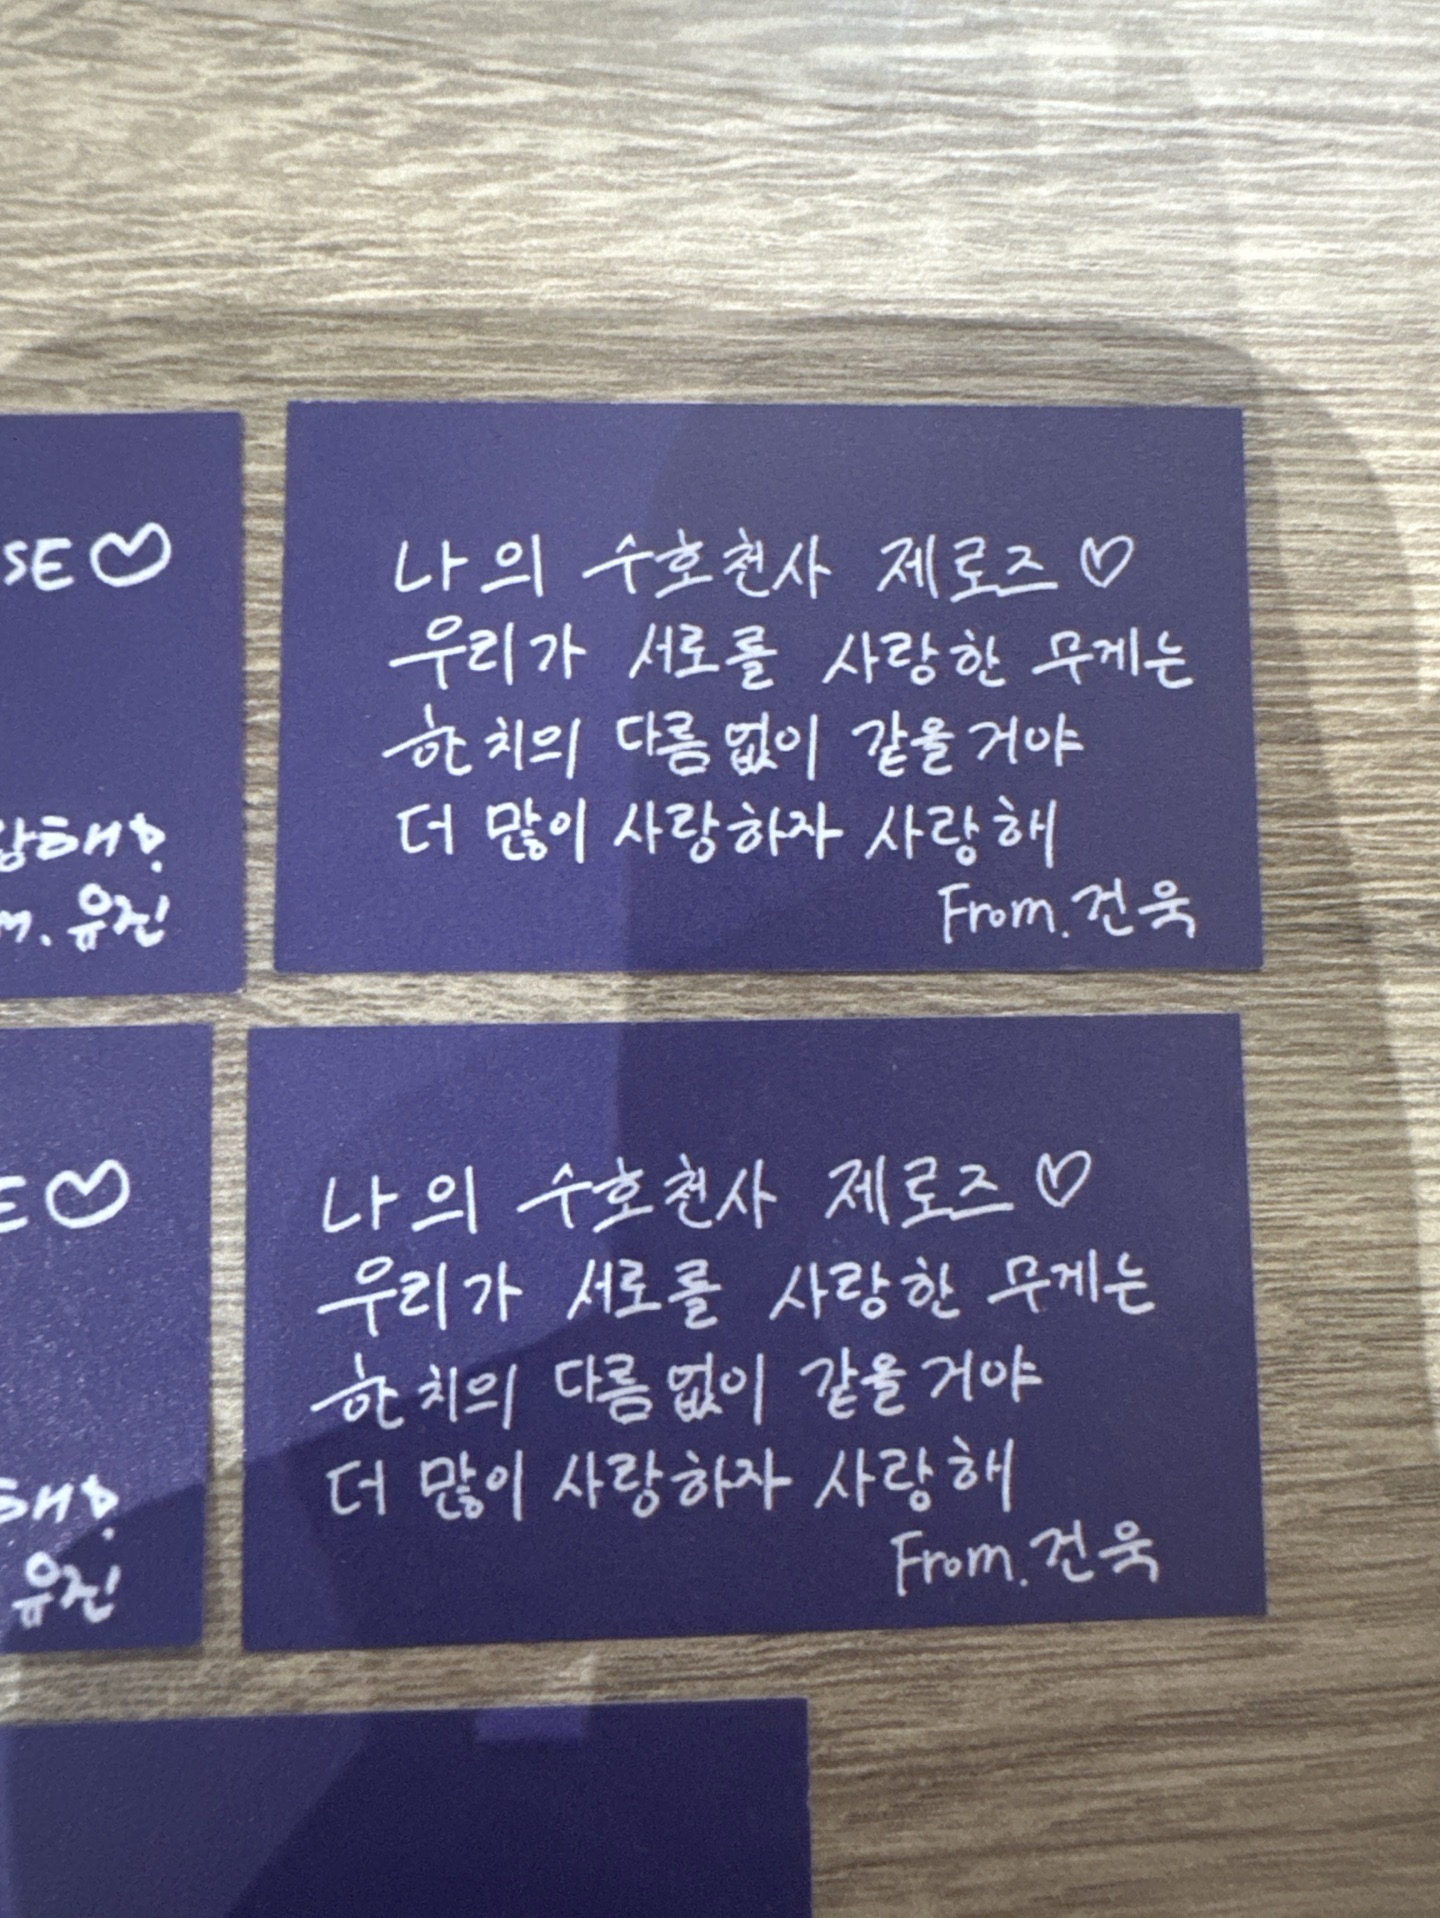 SE♡
해!
유진
나의 수호천사 제로즈♡
우리가 서로를 사랑한 무게는
한 치의 다름없이 같을거야
더 많이 사랑하자 사랑해
From. 건욱
E♡
해!
유진
나의 수호천사 제로즈♡
우리가 서로를 사랑한 무게는
한 치의 다름없이 같을거야
더 많이 사랑하자 사랑해
From. 건욱